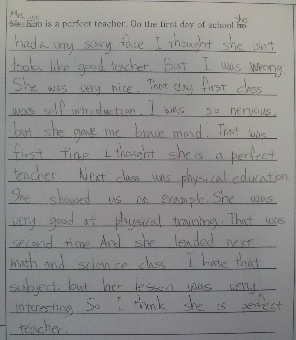 Mrs.
is a perfect teacher. On the first day of school she
had a very scary face I thought she isn't
looks like good teacher. But I was wrong.
She was very nice. That day first class
was self introduction. I was so nervous,
but she gave me brave mind. That was
first time I thought she is a perfect
teacher. Next class was physical education.
She showed us an example. She was
very good at physical training. That was
second time. And she leaded next
math and science class I hate that
subject. but her lesson was very
interesting. So I think she is perfect
teacher.